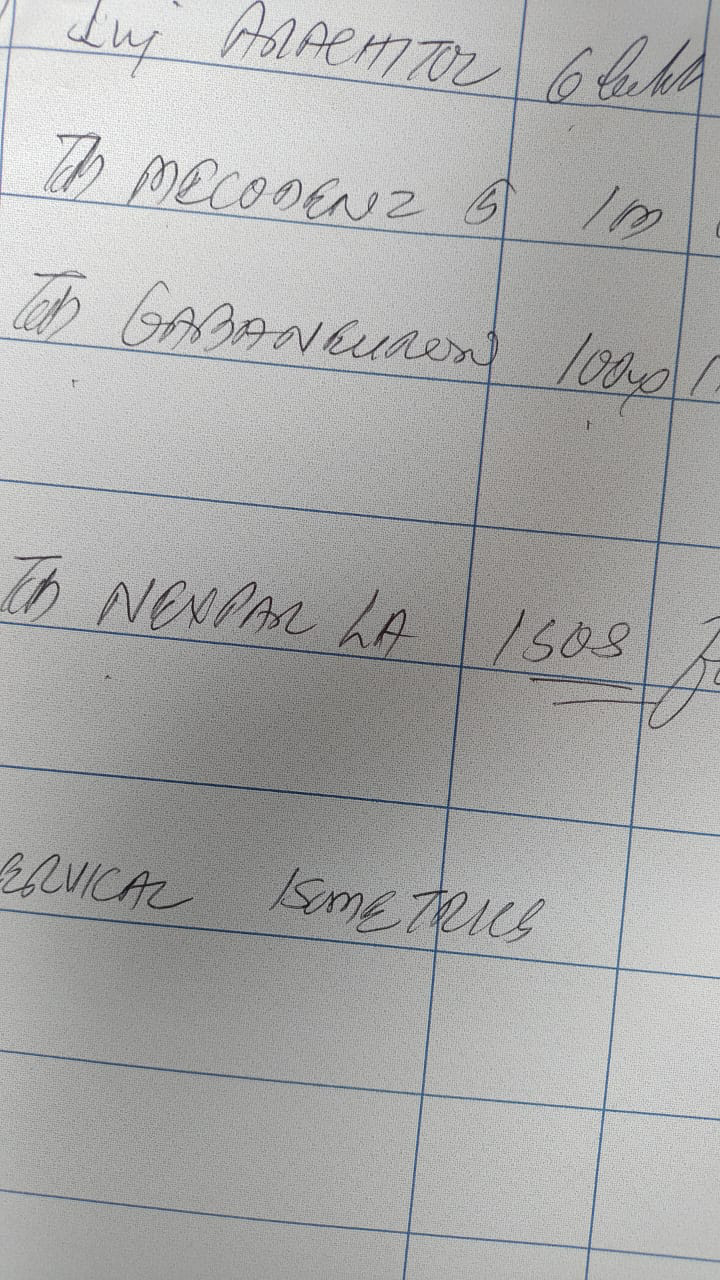 Inj ARACHITOL 6 lakh
Tab MECODENZ G 1 m
Tab GABANEURON 100
Tab NEXPAR LA 1508
ERVICAL ISOMETRICS